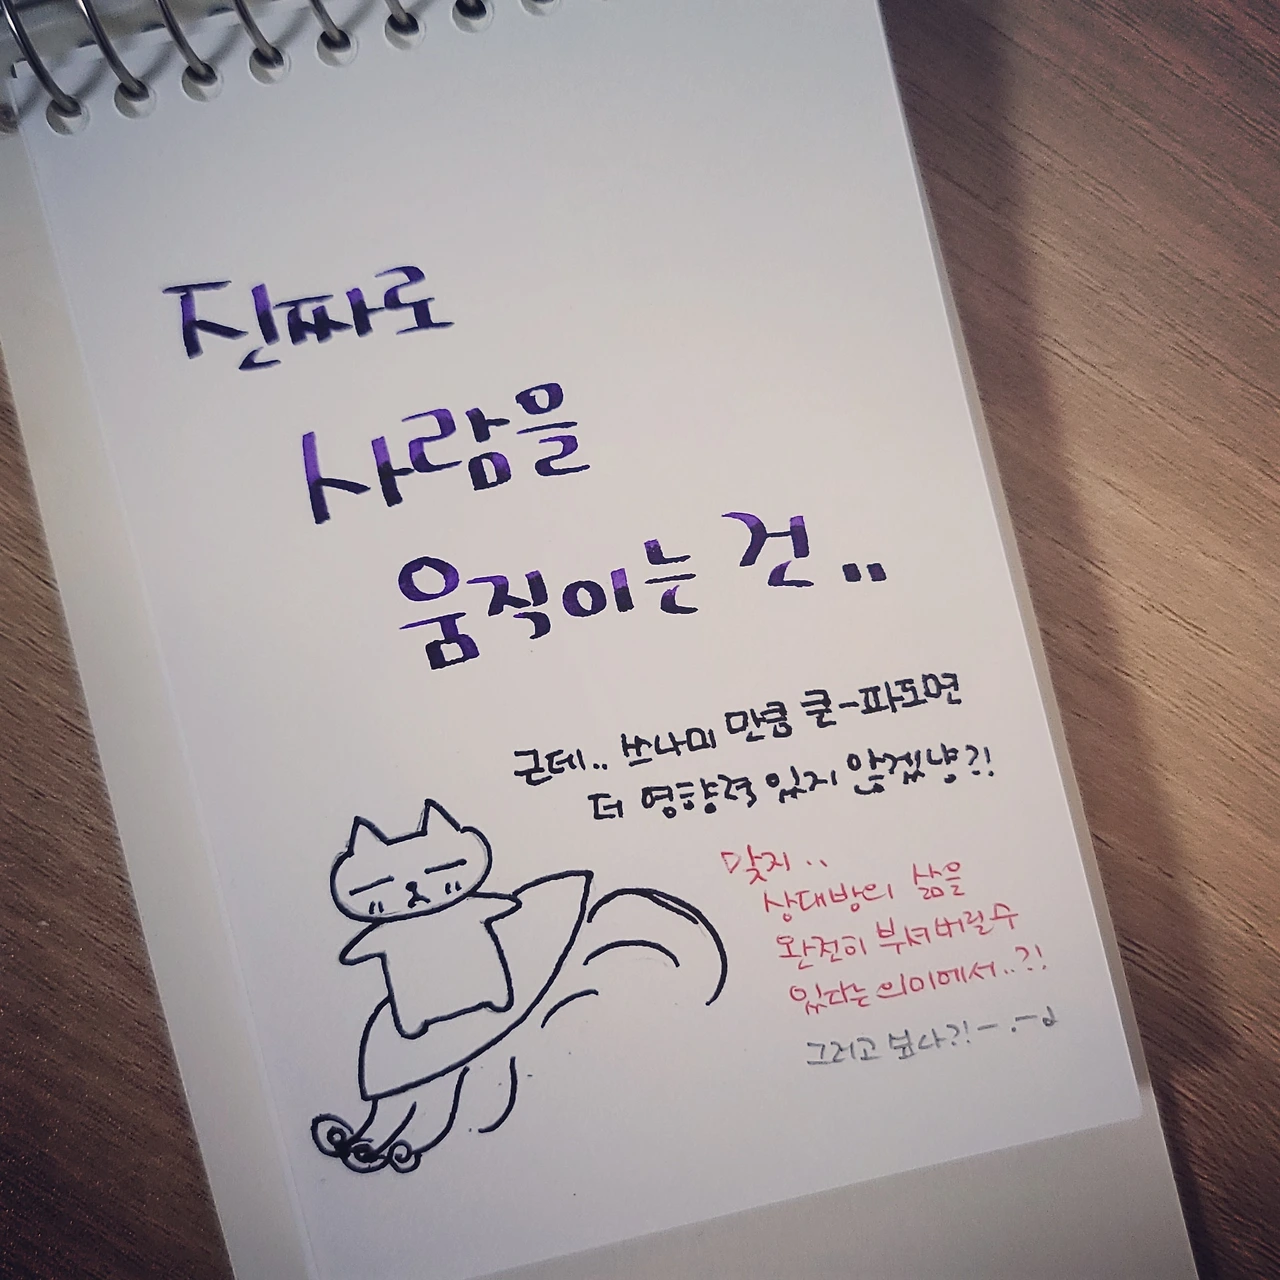 진짜로
사람을
움직이는 건..
근데.. 쓰나미 만큼 큰-파도면
더 영향력 있지 않겠냥?!
맞지..
상대방의 삶을
완전히 부셔버릴 수
있다는 의미에서..?!
그러고 싶나?!